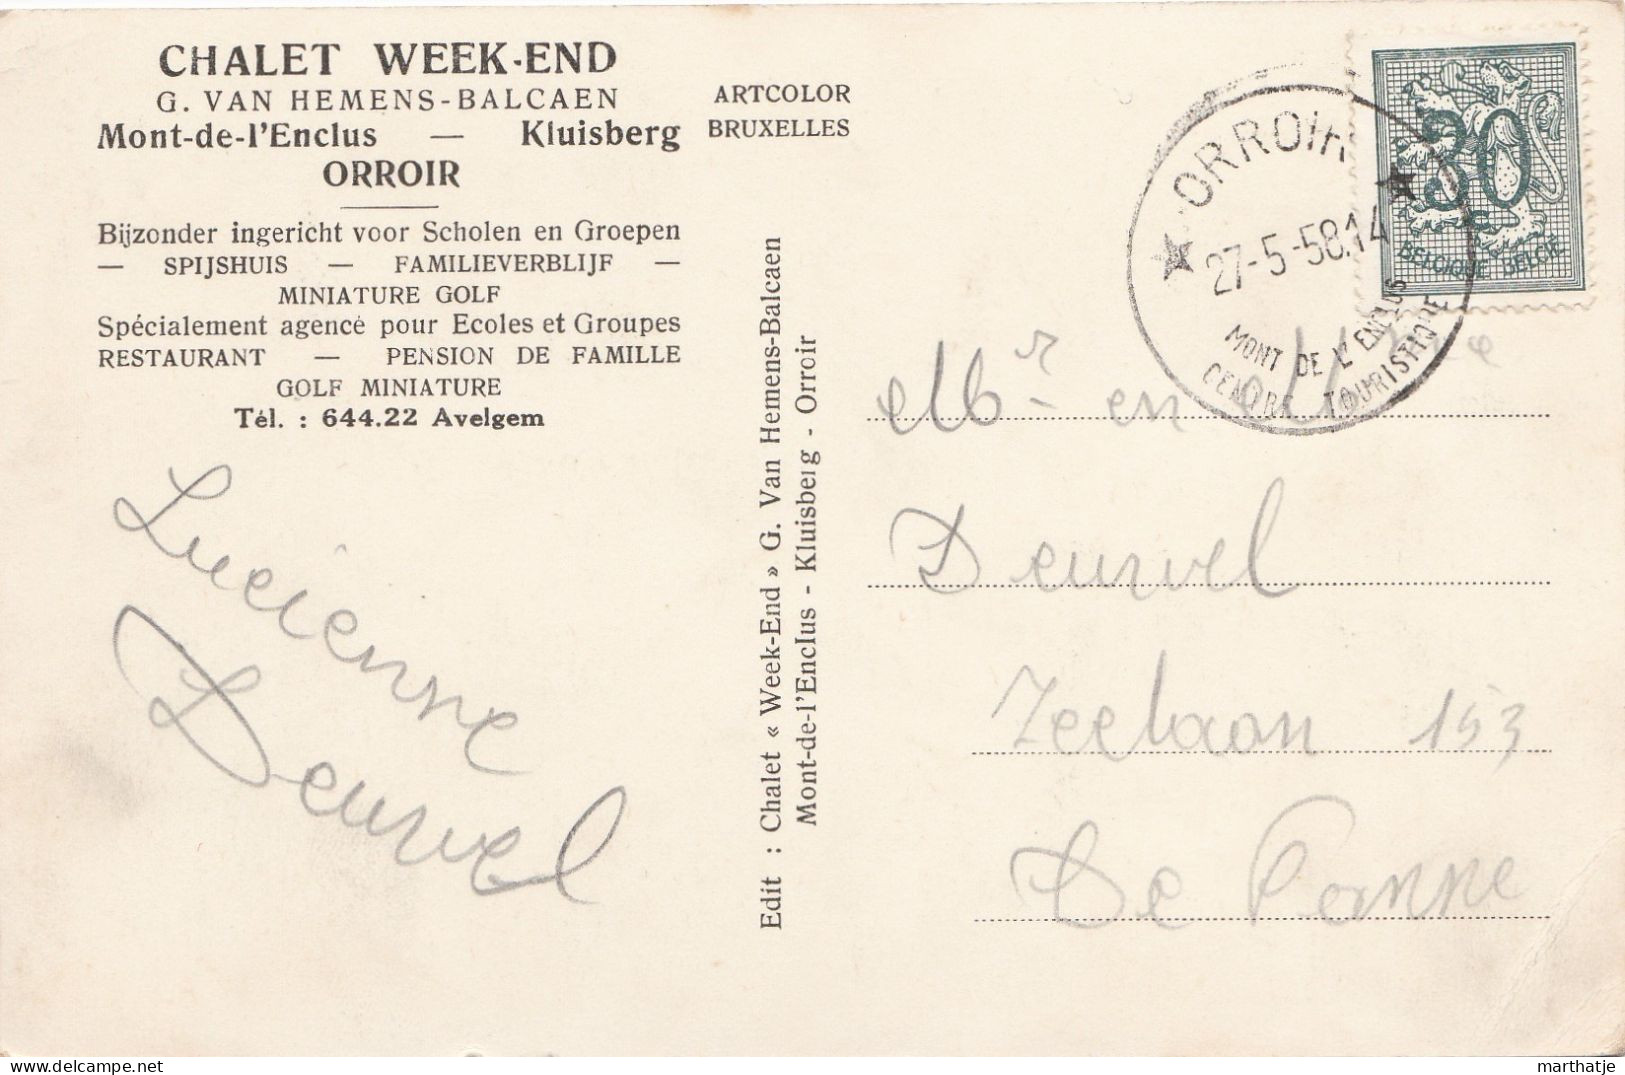 CHALET WEEK-END
G. VAN HEMENS-BALCAEN
Mont-de-l'Enclus — Kluisberg
ORROIR
Bijzonder ingericht voor Scholen en Groepen
— SPIJSHUIS — FAMILIEVERBLIJF —
MINIATURE GOLF
Spécialement agencé pour Ecoles et Groupes
RESTAURANT — PENSION DE FAMILLE
GOLF MINIATURE
Tél. : 644.22 Avelgem
Lucienne
Deurvel
ARTCOLOR
BRUXELLES
Edit : Chalet « Week-End » G. Van Hemens-Balcaen
Mont-de-l'Enclus - Kluisberg - Orroir
ORROIR
27-5-58.14
MONT DE L'ENCLUS
CENTRE TOURISTIQUE
50
BELGIQUE BELGIË
Mr en Mme
Deurvel
Zeelaan 153
De Panne
marthatje